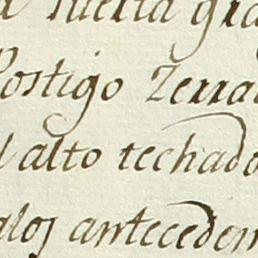 Puerta gra
Postigo Zerra
l alto techado
alos anteceden